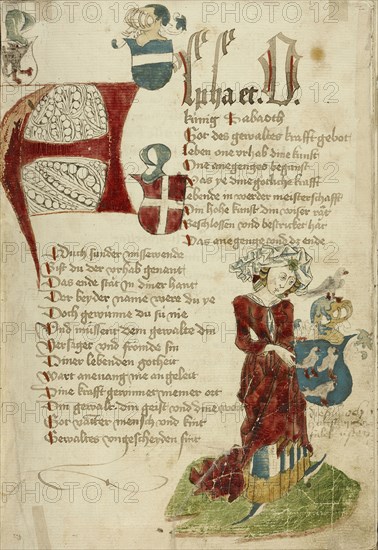 Alpha et. O.
künig Sabaoth
Got des gewaltes krafft gebot
leben one vrhab dine kunst
One anegenges begunst
Was ye dine gotliche krafft
lebende in werder meisterschafft
Din hohe kunst din wiser rat
Beschlossen vnd bestricket hat
Das anegenge vnd de ende
Duch sunder missewende
Bist du der vrhab genant
Das ende stat in diner hant
Der beyder name were du ye
Doch gewunne du sü nie
Vnd mussent dem gewalte din
Versager vnd frömde sin
Diner lebenden gotheit
Wart anevang nie an geleit
Dine krafft gerymet niemer ort
Din gewalt din geist vnd dine wort
Got vatter mensch vnd kint
Gewaltes vngescheyden sint
PHOTO12